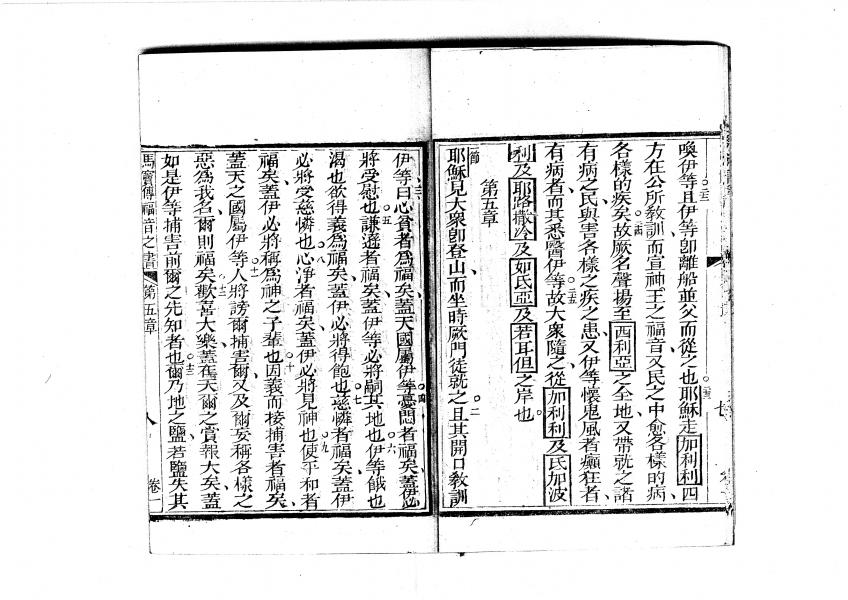 喚伊等且伊等卽離船並父而從之也耶穌走加利利四
方在公所教訓而宣神王之福音又民之中愈各樣的病
各樣的疾矣故厥名聲揚至西利亞之全地又帶就之諸
有病之民與害各樣之疾之患又伊等懷鬼風者癲狂者
有病者而其悉醫伊等故大衆隨之從加利利及氏加波
利及耶路撒冷及如氏亞及若耳但之岸也
第五章
耶穌見大衆卽登山而坐時厥門徒就之且其開口教訓
伊等曰心貧者爲福矣蓋天國屬伊等憂悶者福矣蓋伊必
將受慰也謙遜者福矣蓋伊等必將嗣其地也伊等餓也
渴也欲得義爲福矣蓋伊必將得飽也慈憐者福矣蓋伊
必將受慈憐也心淨者福矣蓋伊必將見神也使平和者
福矣蓋伊必將稱爲神之子輩也因義而棱捕害者福矣
蓋天之國屬伊等人將謗爾捕害爾又及爾妄稱各樣之
惡爲我名爾則福矣歡喜大樂蓋在天爾之賞報大矣蓋
如是伊等捕害前爾之先知者也爾乃地之鹽若鹽失其
馬竇傳福音之書 第五章 八 卷一